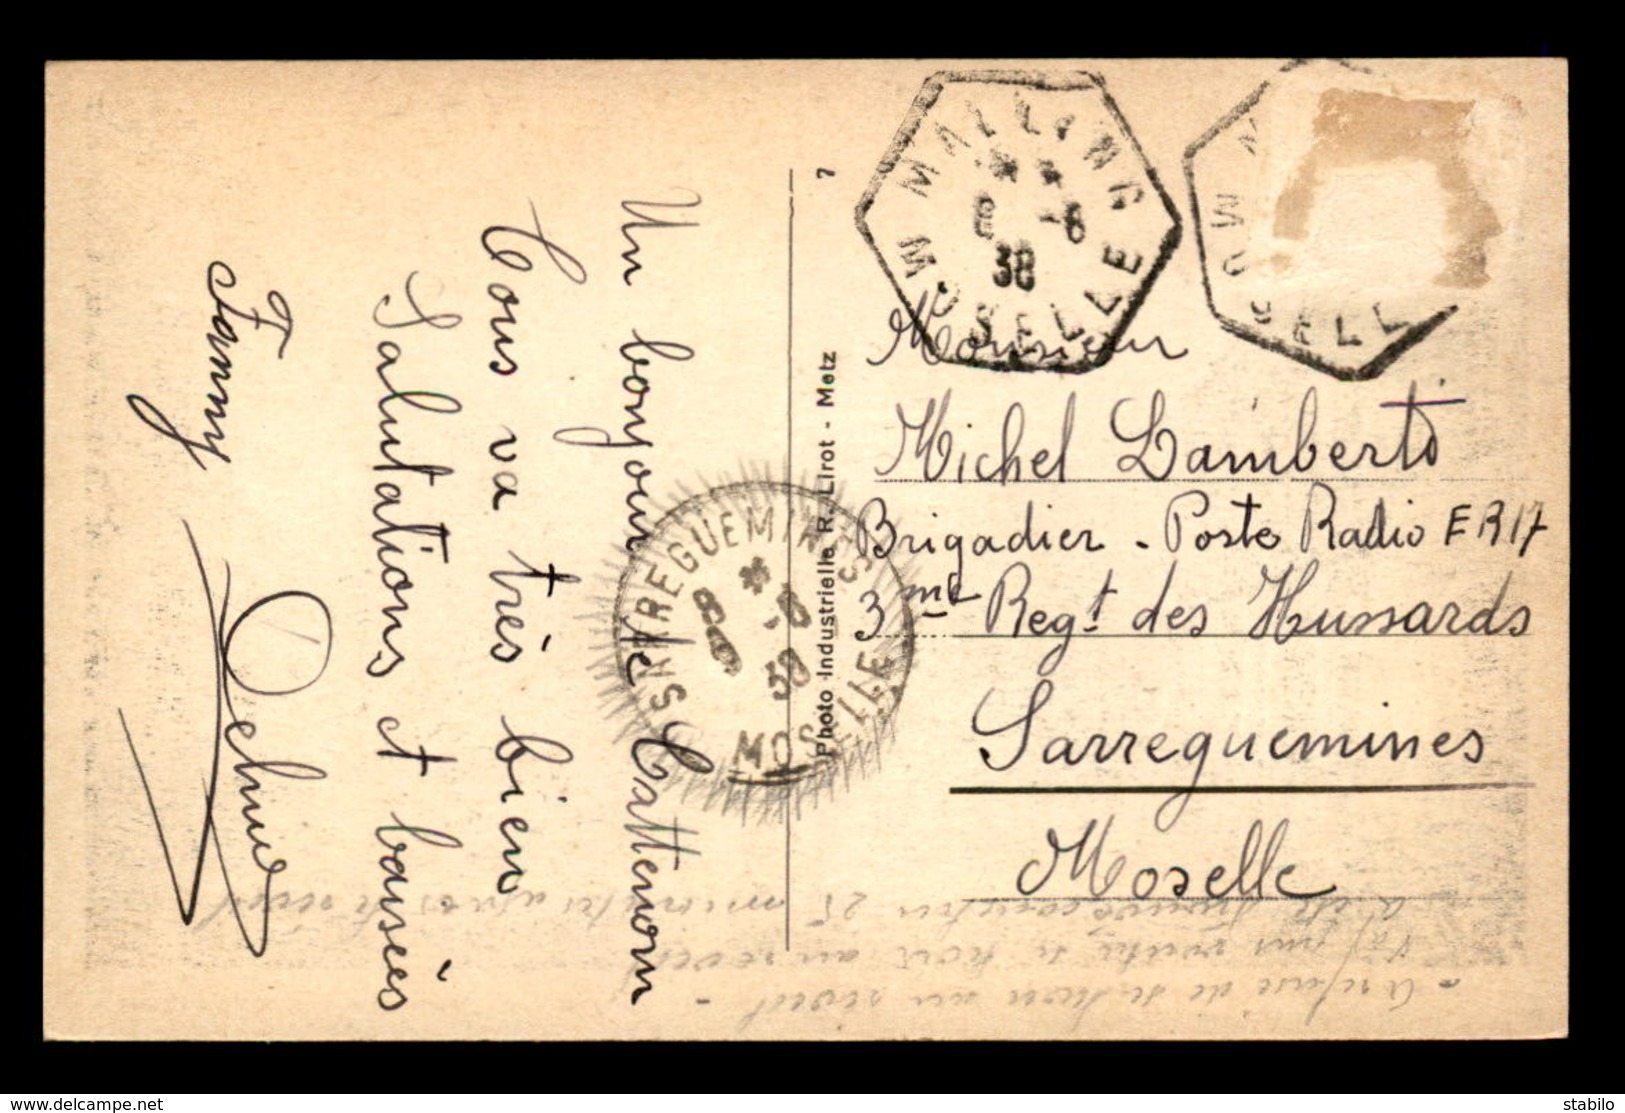 Un bonjour de Cattenom
Tous va très bien
Salutations et baisées
Fanny
MALLING
* *
8 -8
38
MOSELLE
MOSELL
SARREGUEMINES
* -8
38
MOSELLE
7
Photo Industrielle R. Lirot - Metz
Monsieur
Michel Lamberti
Brigadier - Poste Radio ER17
3me Regt des Hussards
Sarreguemines
Moselle
https://www.delcampe.net
stabilo